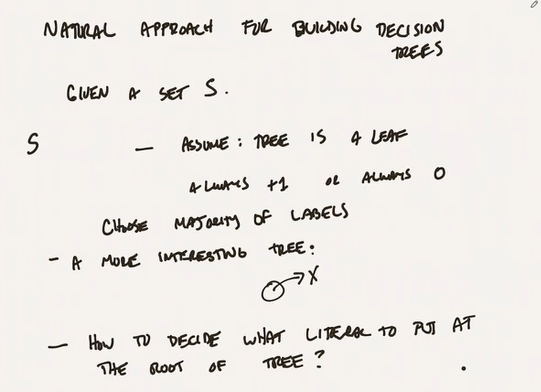 NATURAL APPROACH FOR BUILDING DECISION
TREES
GIVEN A SET S.
S
— ASSUME: TREE IS A LEAF
ALWAYS +1 OR ALWAYS 0
CHOOSE MAJORITY OF LABELS
- A MORE INTERESTING TREE:
→ X
— HOW TO DECIDE WHAT LITERAL TO PUT AT
THE ROOT OF TREE?